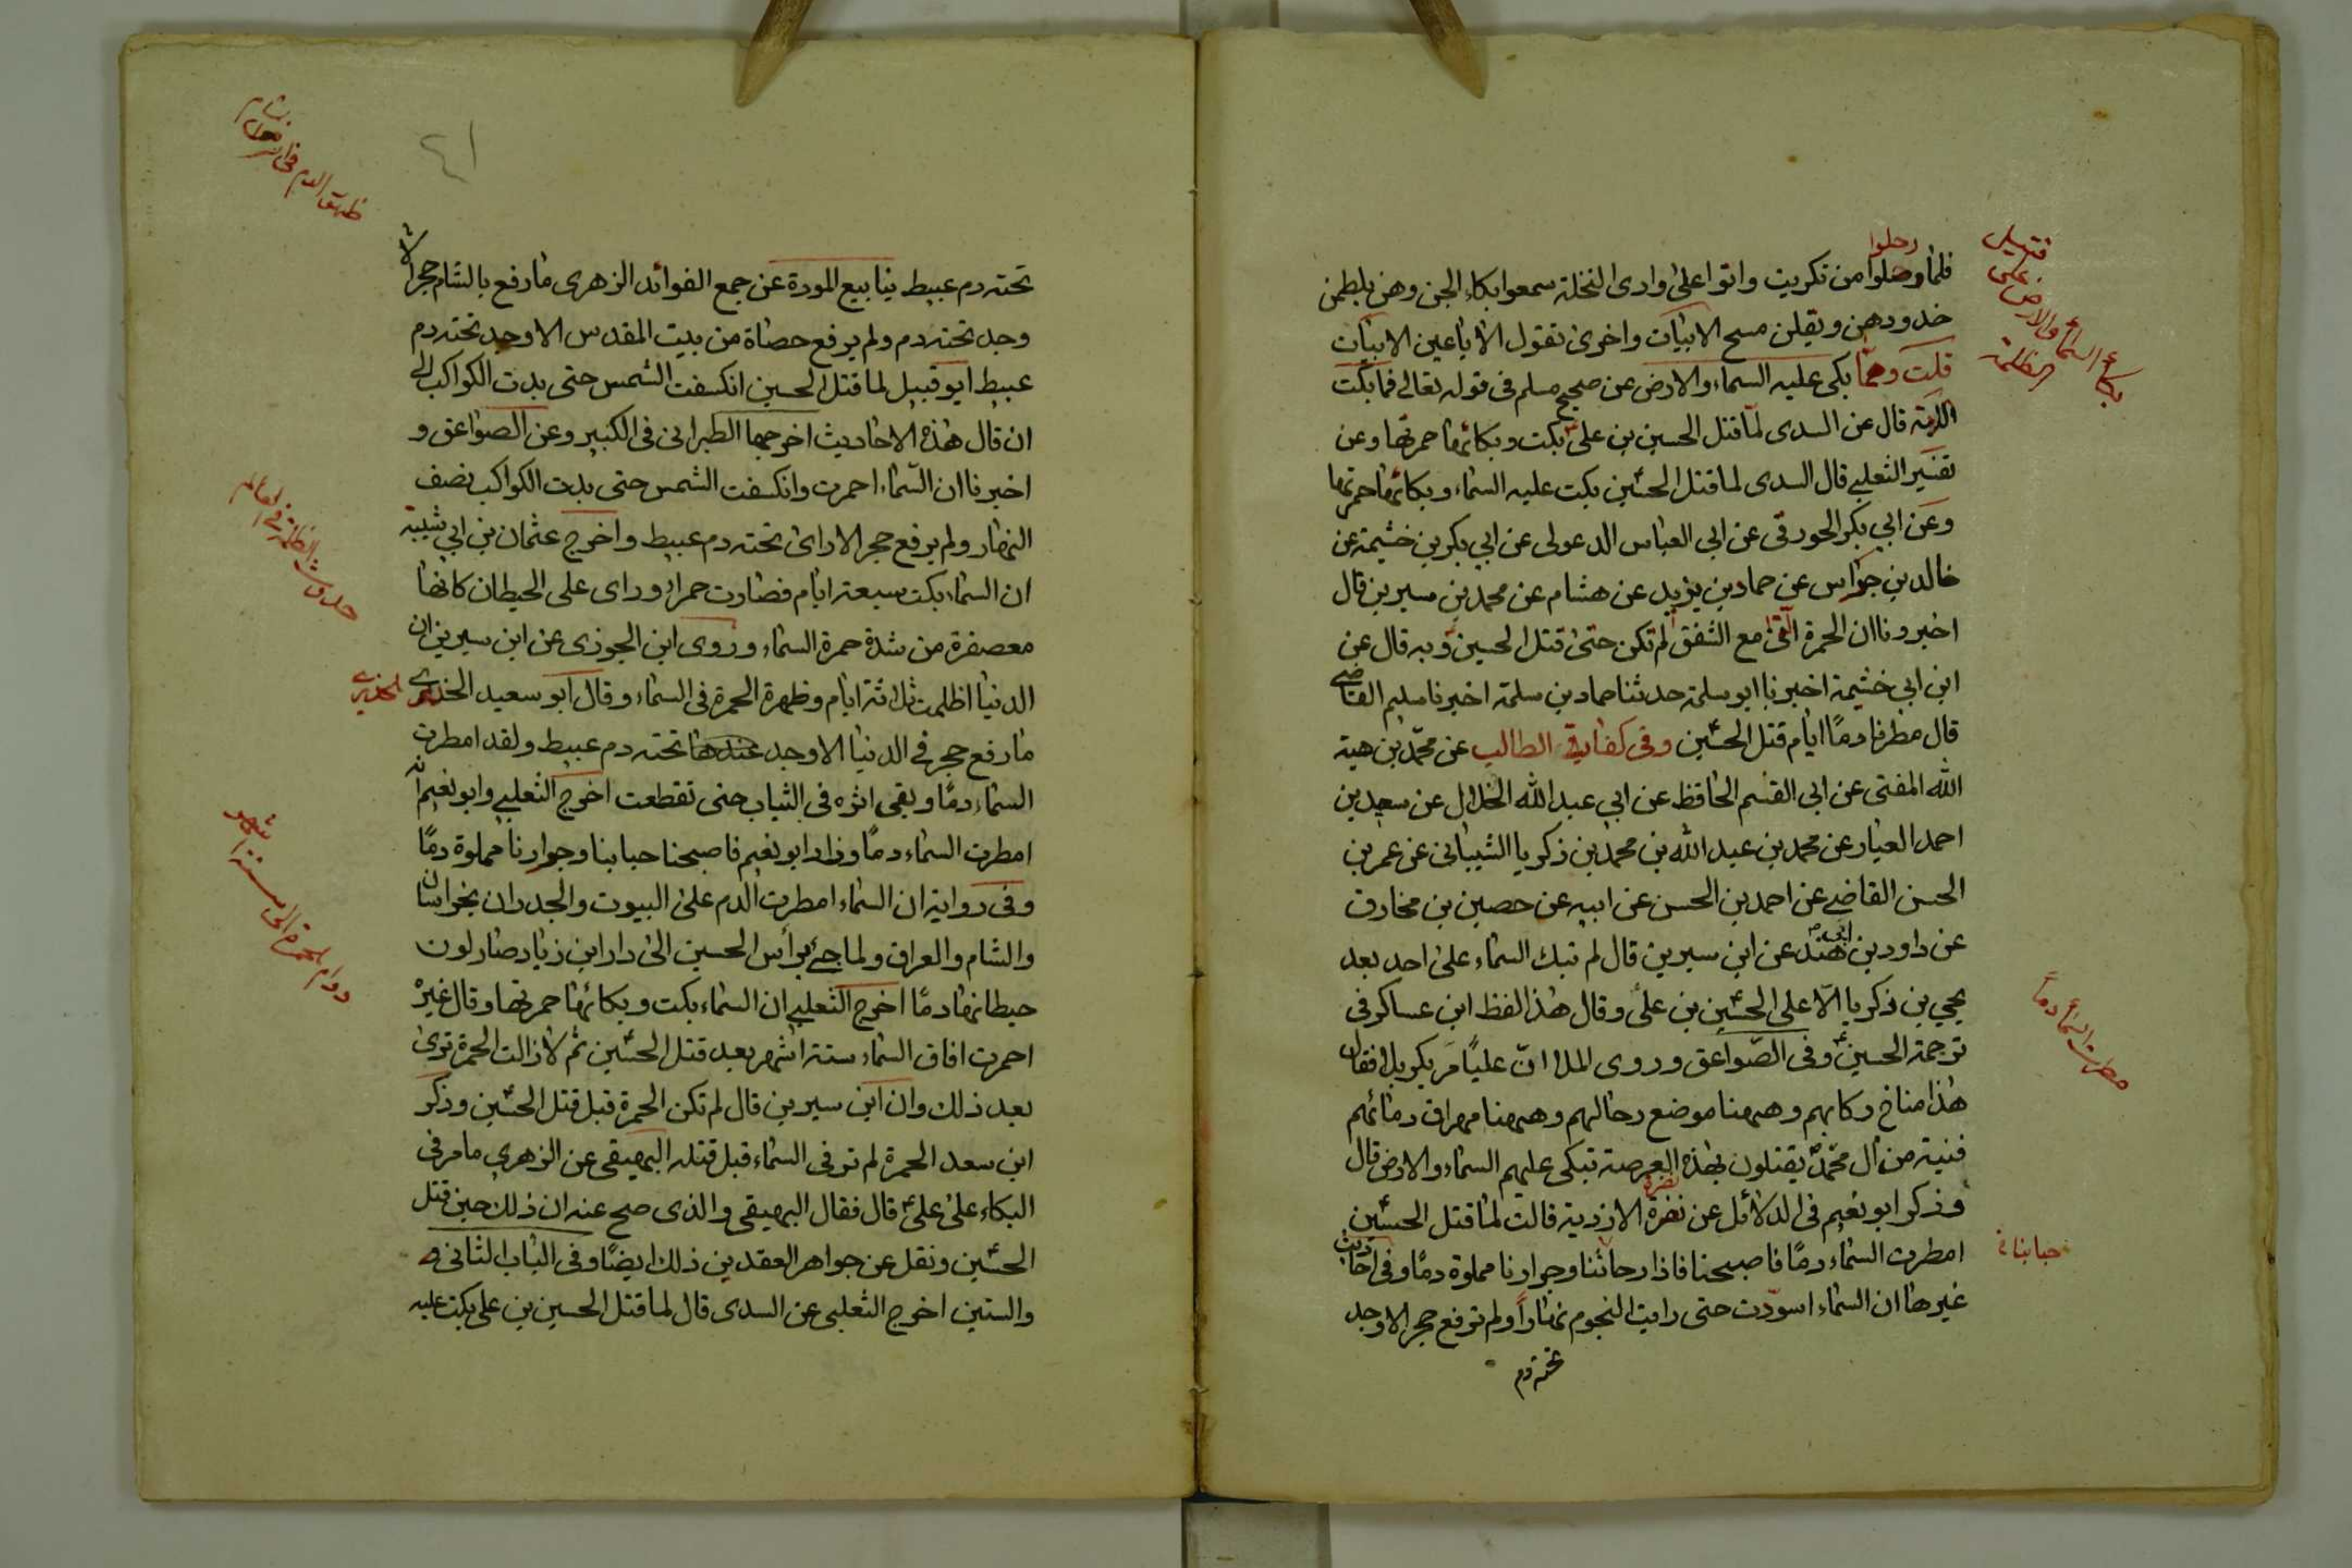 رحلوا
فلما وصلوا من تكريت واتوا على وادى النخلة سمعوا بكاء الجن وهن يلطمن
خدودهن ويقلن مسح الابيات واخرى تقول الا يا عين الابيات
قلت ومما بكى عليه السماء والارض عن صحيح مسلم فى قوله تعالى فما بكت
الاية قال عن السدى لما قتل الحسين بن على بكت وبكائها حمرتها وعن
تفسير الثعلبي قال السدى لما قتل الحسين بكت عليه السماء وبكائها حمرتها
وعن ابي بكر الجورقى عن ابى العباس الدعولى عن ابي بكر بن خثيمة عن
خالد بن جواس عن حماد بن يزيد عن هشام عن محمد بن سيرين قال
اخبرونا ان الحمرة التى مع الشفق لم تكن حتى قتل الحسين وبه قال عن
ابن ابى خثيمة اخبرنا ابو سلمة حدثنا حماد بن سلمة اخبرنا سليم القاضى
قال مطرنا دمًا ايام قتل الحسين وفى كفاية الطالب عن محمد بن هبة
الله المفتى عن ابى القسم الحافظ عن ابي عبد الله الخلال عن سعيد بن
احمد العيار عن محمد بن عبد الله بن محمد بن زكريا الشيبانى عن عمر بن
الحسن القاضى عن احمد بن الحسن عن ابيه عن حصين بن مخارق
عن داود بن ابى هند عن ابن سيرين قال لم تبك السماء على احد بعد
يحيى بن زكريا الا على الحسين بن على وقال هذا لفظ ابن عساكر فى
ترجمة الحسين وفى الصواعق وروى الملا ان عليا مر بكربلا فقال
هذا مناخ ركابهم وههنا موضع رحالهم وههنا مهراق دمائهم
فتية من ال محمد يقتلون بهذه العرصة تبكى عليهم السماء والارض قال
وذكر ابو نعيم فى الدلائل عن نضرة الازدية قالت لما قتل الحسين
امطرت السماء دمًا فاصبحنا فاذا رحائنا وجرارنا مملوة دمًا وفى احاديث
غيرها ان السماء اسودت حتى رايت النجوم نهاراً ولم ترفع حجر الا وجد
تحته دم
بكاء السماء والارض
الظلمة
مطرت السماء دماً
حبابنا
٤١
تحته دم عبيط ينابيع المودة عن جمع الفوائد الزهرى ما رفع بالشام حجر الا
وجد تحته دم ولم يرفع حصاة من بيت المقدس الا وجد تحته دم
عبيط ابو قبيل لما قتل الحسين انكسفت الشمس حتى بدت الكواكب الى
ان قال هذه الاحاديث اخرجها الطبرانى فى الكبير وعن الصواعق و
اخبرنا ان السماء احمرت وانكسفت الشمس حتى بدت الكواكب نصف
النهار ولم يرفع حجر الا راى تحته دم عبيط واخرج عثمان بن ابي شيبة
ان السماء بكت سبعة ايام فصارت حمراء وراى على الحيطان كانها
معصفرة من شدة حمرة السماء وروى ابن الجوزى عن ابن سيرين ان
الدنيا اظلمت ثلاثة ايام وظهرة الحمرة فى السماء وقال ابو سعيد الخدرى
ما رفع حجر فى الدنيا الا وجد عندها تحته دم عبيط ولقد امطرت
السماء دمًا وبقى اثره فى الثياب حتى تقطعت اخرج الثعلبي وابو نعيم انه
امطرت السماء دمًا وزاد ابو نعيم فاصبحنا حبابنا وجرارنا مملوة دمًا
وفى رواية ان السماء امطرت الدم على البيوت والجدران بخراسان
والشام والعراق ولما جئ براس الحسين الى دار ابن زياد صار لون
حيطانها دمًا اخرج الثعلبي ان السماء بكت وبكائها حمرتها وقال غيره
احمرت افاق السماء ستة اشهر بعد قتل الحسين ثم لا زالت الحمرة ترى
بعد ذلك وان ابن سيرين قال لم تكن الحمرة قبل قتل الحسين وذكر
ابن سعد الحمرة لم تر فى السماء قبل قتله البيهقى عن الزهرى ما مر فى
البكاء على على قال فقال البيهقى والذى صح عنه ان ذلك حين قتل
الحسين ونقل عن جواهر العقدين ذلك ايضًا وفى الباب الثانى و
والستين اخرج الثعلبى عن السدى قال لما قتل الحسين بن على بكت عليه
الخدرى